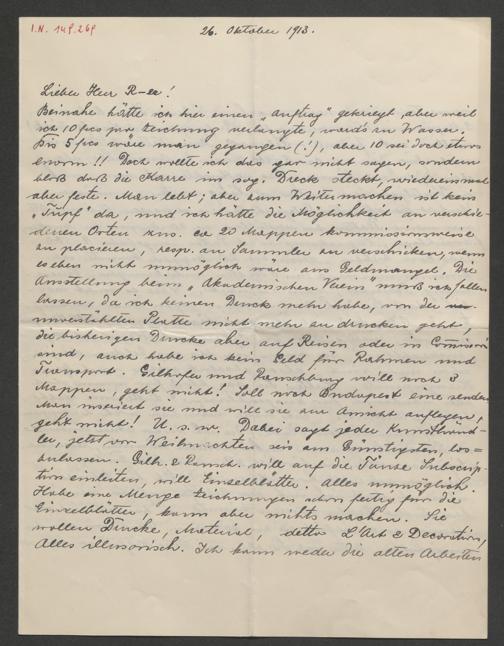 I.N. 149.269
26. Oktober 1913.
Lieber Herr R-er!
Beinahe hätte ich hier einen „Auftrag" gekriegt, aber weil
ich 10 frcs pro Zeichnung verlangte, wards zu Wasser.
Bis 5 frcs wäre man gegangen (!), aber 10 sei doch etwas
enorm!! Doch wollte ich das gar nicht sagen, sondern
bloß daß die Karre im sog. Dreck steckt, wiedereinmal
aber feste. Man lebt; aber zum Weitermachen ist kein
„Tüpf" da, und ich hätte die Möglichkeit an verschie-
denen Orten zus. ca 20 Mappen kommissionsweise
zu placieren, resp. an Sammler zu verschicken, wenn
es eben nicht unmöglich wäre aus Geldmangel. Die
Ausstellung beim „Akademischen Verein" muß ich fallen
lassen, da ich keinen Druck mehr habe, von der
unverstählten Platte nicht mehr zu drucken geht,
die bisherigen Drucke aber auf Reisen oder in Comission
sind, auch habe ich kein Geld für Rahmen und
Transport. Gilhofer und Ranschburg will noch 3
Mappen, geht nicht! Soll nach Budapest eine senden
Man inseriert sie und will sie zur Ansicht auflegen,
geht nicht! U. s. w. Dabei sagt jeder Kunsthänd-
ler, jetzt vor Weihnachten seis am Günstigsten, los=
zulassen. Gilh. & Ransch. will auf die Tänze Subscrip-
tion einleiten, will Einzelblätter. Alles unmöglich.
Habe eine Menge Zeichnungen schon fertig für die
Einzelblätter, kann aber nichts machen. Sie
wollen Drucke, Material, detto L'Art & Decoration,
Alles illusorisch. Ich kann weder die alten Arbeiten